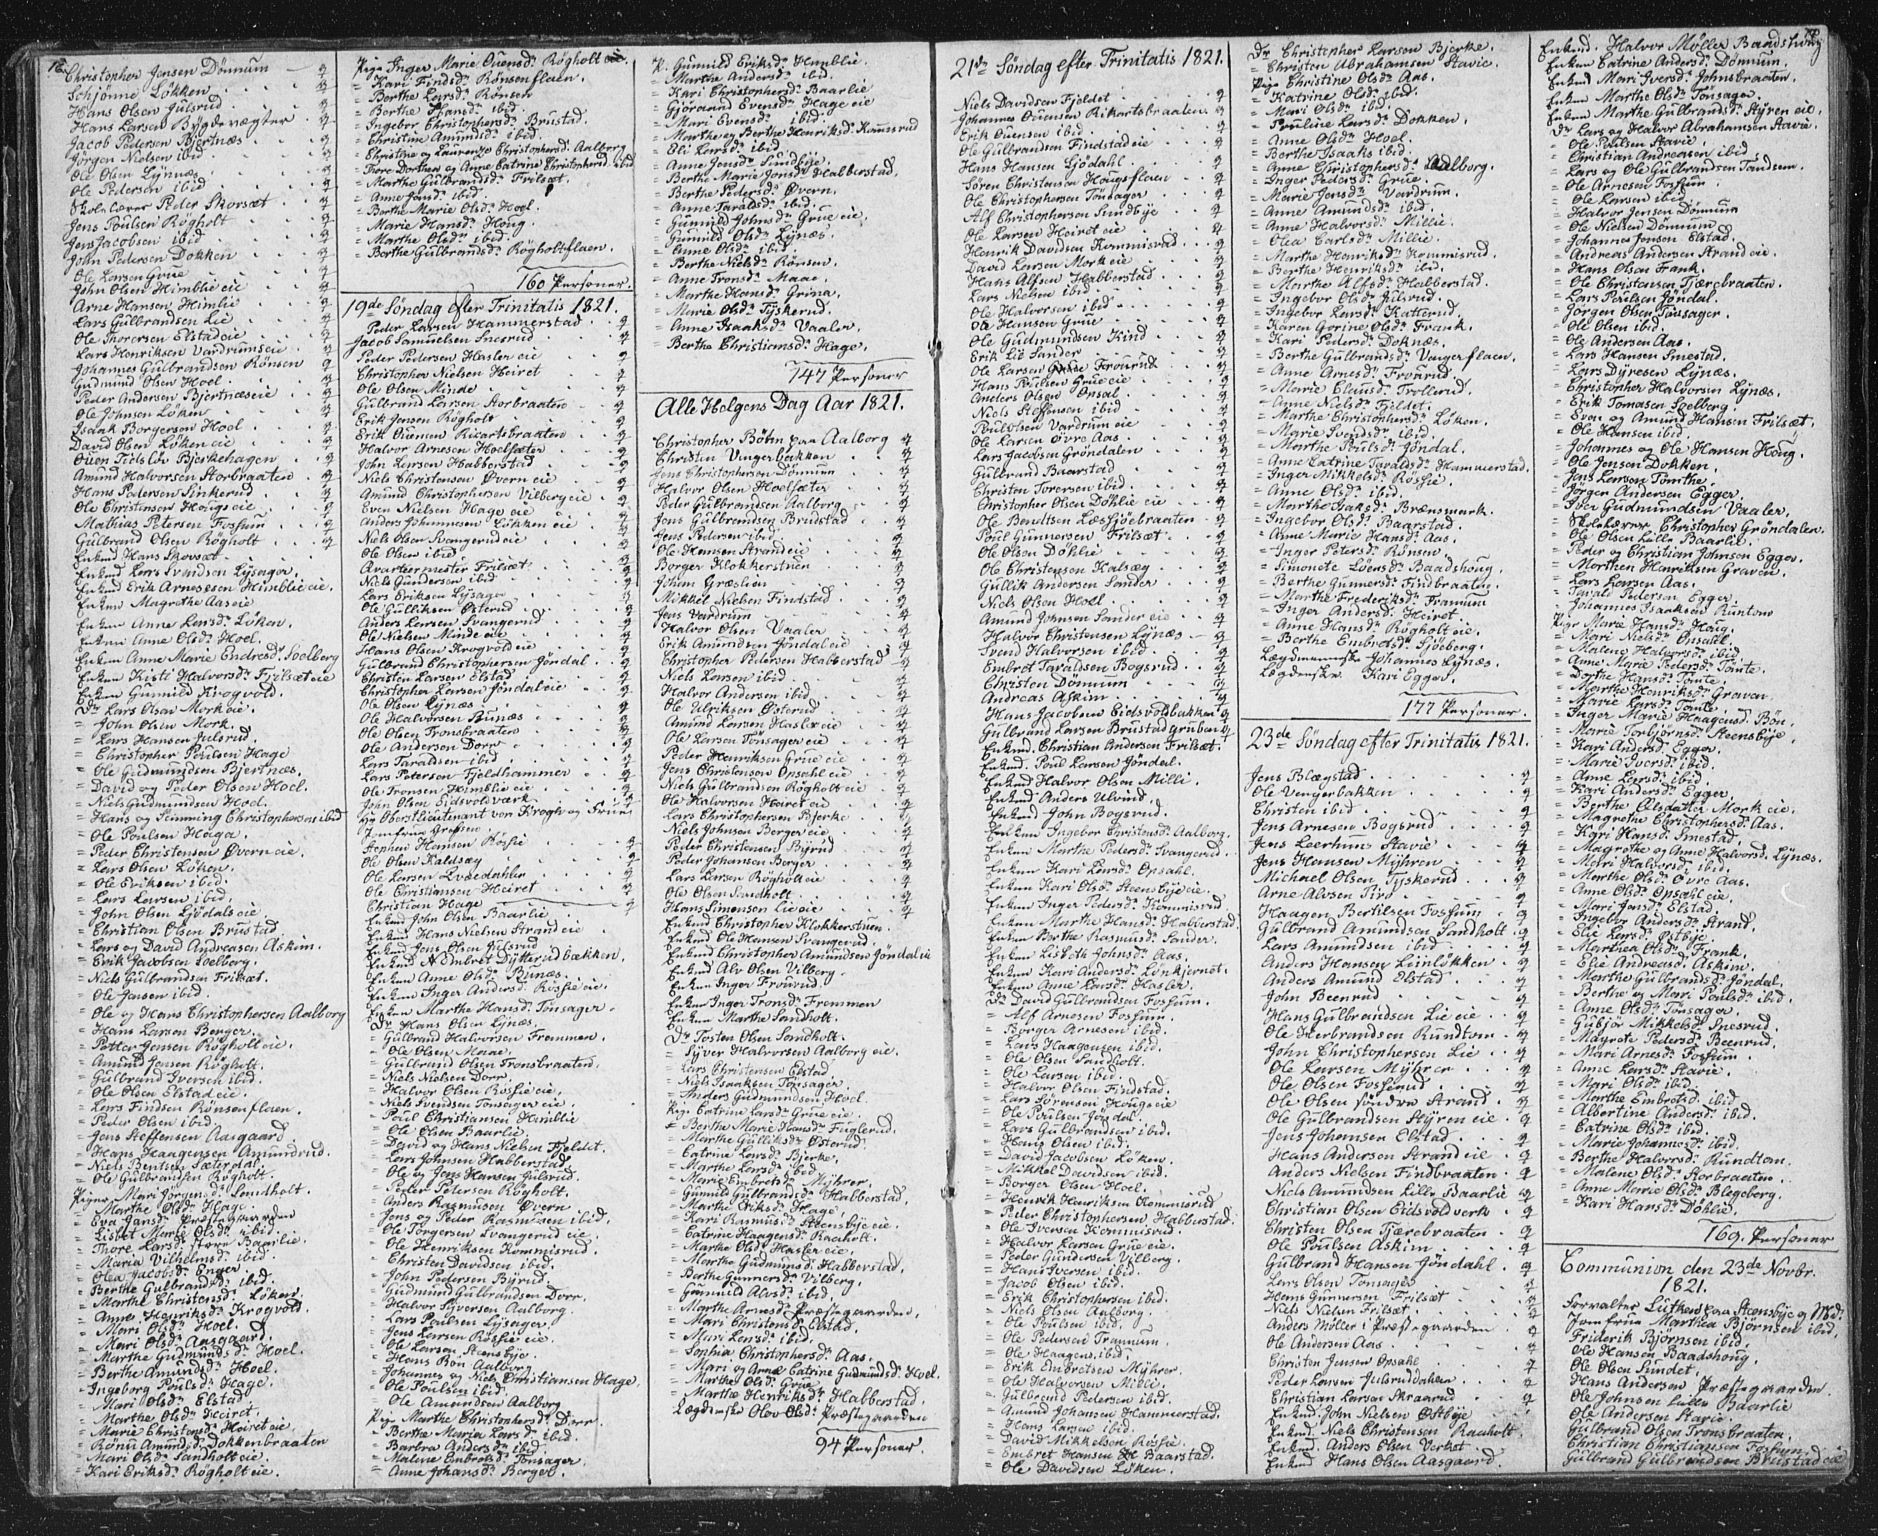 Christopher Jensen Dönnum - 2
Schjönne Løkken
Hans Olsen Julsrud
Hans Larsen Bygdevægter
Jacob Pedersen Bjertnæs
Jörgen Nielsen ibid
Ole Olsen Lynæs
Ole Pedersen ibid
Skolelærer Peder Skorsæt
Jens Poulsen Rögholt
Jens Jacobsen ibid
John Pedersen Dokken
Ole Larsen Grue
John Olsen Himblie eie
Arne Hansen Himlie
Lars Gulbrandsen Lie
Ole Thoresen Elstad eie
Lars Henriksen Vardrums eie
Johannes Gulbrandsen Rönsen
Gudmund Olsen Hoel
Peder Andersen Bjertnæs eie
Ole Johnsen Löken
Isaak Borgersen Hoel
David Olsen Löken eie
Ouen Tidsløv Bjerkehagen
Amund Halvorsen Storbraaten
Hans Pedersen Sinkerud
Ole Christensen Hougs eie
Mathias Petersen Fossum
Gulbrand Olsen Rögholt
Enkmd Hans Skorsæt
Enkmd Lars Svendsen Lysager
Enkmd Erik Arnesesen Himblie eie
Enken Magrethe Aas eie
Enken Anne Larsdr Löken
Enken Anne Olsdr Hoel
Enken Anne Marie Endresdr Soelberg
Enken Kisti Halvorsdr Frilsæt eie
Enken Gunnild Krogvold
Dr Lars Olsen Mork eie
= John Olsen Mork
= Lars Hansen Julsrud
= Christopher Poulsen Hage
= Ole Gudmundsen Bjertnæs
= David og Peder Olsen Hoel
= Niels Gudmundsen Hoel
= Hans og Flemming Christophersen ibid
= Ole Poulsen Haga
= Peder Christensen Øvern eie
= Lars Olsen Löken
= Ole Eriksen ibid
= Lars Larsen ibid
= John Olsen Ljödals eie
= Christian Olsen Brustad
= Lars og David Andreasen Askim
= Erik Jacobsen Soelberg
= Niels Gulbrandsen Frilsæt
= Ole Jensen ibid
= Ole og Hans Christophersen Aalborg
= Hans Larsen Berger
= Petter Jensen Rögholt eie
= Amund Jensen Rögholt
= Gulbrand Iversen ibid
= Ole Olsen Elstad eie
= Lars Findsen Rönsenflaen
= Peder Olsen ibid
= Jens Steffensen Aasgaard
= Hans Haagensen Amundrud
= Niels Bentsen Sæterdal
= Ole Gulbrandsen Rögholt
Piger Mari Jörgensdr Sandholt
= Marthe Olsdr Hage
= Eva Jansdr Præstegaarden
= Lisbet Marie Olsdr ibid
= Thore Larsdr store Baarlie
= Maria Vilhelmsdr ibid
= Olea Jacobsdr Enger
= Berthe Gulbrandsdr ibid
= Marthe Christensdr Löken
= Annes Henriksdr Krogvold
= Mari Olsdr Hoel
= Mari Olsdr Aasgaard
= Marthe Gudmundsdr Hoel
= Berthe Amundsdr Hoel
= Ingeborg Poulsdr Hage
= Mari Olsdr Elstad
= Marthe Olsdr Heiret
= Marie Christensdr Heiret eie
= Rönnu Amundsdr Dokkenbraaten
= Mari Olsdr Sandholt eie
= Kari Eriksdr Rögholt eie
Pige Inger Marie Ouensdr Rögholt eie
= Kari Findsdr Rönsenflaen
= Berthe Larsdr Rönsen
= Berthe Hansdr ibid
= Ingebor Christophersdr Brustad
= Christine Amundsdr ibid
= Christine og Laurenze Christophersdr Aalborg
= Tore Dorthea og Anne Catrine Christophersdr ibid
= Marthe Gulbrandsdr Frilsæt
= Anne Jonsdr ibid
= Berthe Marie Olsdr Hoel
= Marie Hansdr Houg
= Marthe Olsdr ibid
= Berthe Gulbrandsdr Rögholtflaen
160 Personer.
19de Söndag efter Trinitatis 1821.
Peder Larsen Hammerstad
Jacob Samuelsen Snesrud
Peder Pedersen Hasler eie
Christopher Nielsen Heiret
Ole Olsen Minde
Gulbrand Larsen Storbraaten
Erik Jensen Rögholt
Erik Ouensen Ricartsbraaten
Halvor Arnesen Hoelsæter
John Larsen Habberstad
Niels Christensen Øvern eie
Amund Christophersen Vilberg eie
Even Nielsen Hage eie
Anders Johannesen Lökken eie
Niels Olsen Svangerud eie
Ole Olsen ibid
Qvartermester Frilsæt
Niels Gundersen ibid
Lars Eriksen Lysager
Ole Gulliksen Østerud
Anders Larsen Svangerud
Ole Nielsen Minde eie
Hans Olsen Krogvold eie
Gulbrand Christophersen Jöndal
Christen Larsen Elstad
Christopher Larsen Jöndal eie
Ole Olsen Lynæs
Ole Halvorsen Bunæs
Ole Olsen Tronsbraaten
Ole Andersen Dorr
Lars Taraldsen ibid
Lars Petersen Fjeldhammer
Ole Tronsen Himblie eie
John Olsen Eidsvoldværk
Hr Oberstlieutenant von Krogh og Frue
Jomfrue Grefsen
Stephen Hansen Røssie
Ole Olsen Kaldsæg
Ole Larsen Qværdahler
Ole Christiansen Heiret
Christian Hage
Enkmd John Olsen Baarlie
Enkmd Hans Nielsen Strand eie
Enkmd Jens Olsen Julsrud
Enkmd N Embret Dytterud bakken
Enken Anne Olsdr Bunæs
Enken Inger Andersdr Røssie eie
Enken Marthe Hansdr Tønsager
Dr Hans Olsen Lynæs
= Gulbrand Halvorsen Fremmen
= Ole Olsen Maae
= Gulbrand Olsen Tronsbraaten
= Niels Nielsen Dorr
= Halvor Olsen Røssie eie
= Niels Svendsen Tonsager eie
= Poul Christiansen Himblie
= Ole Olsen Baarlie
= David og Hans Nielsen Fjeldet
= Lars Johnsen Habberstad
= Ole og Jens Hansen Julsrud
= Peter Petersen Rögholt
= Anders Rasmussen Øvern
= Jens og Peder Rasmussen ibid
= Ole Torgersen Svangerud eie
= Ole Henriksen Kommisrud
= Christen Davidsen ibid
= John Pedersen Byrud
= Gudmund Gulbrandsen Dorr
= Halvor Syversen Aalborg
= Lars Poulsen Lysager
= Jens Larsen Røssie eie
= Ole Larsen Steensbye
= Hans Bön Aalborg
= Johannes og Niels Christiansen Hage
= Ole Poulsen ibid
= Ole Amundsen Aalborg
Pige Marthe Christophersdr Dorr
= Berthe Maria Larsdr ibid
= Barbra Andersdr ibid
= Malene Embretsdr Tonsager
= Anne Johansdr Berger
P. Gunnild Eriksdr Himblie
= Marthe Andersdr ibid
= Kari Christophersdr Baarlie
= Gjöraand Evensdr Hage eie
= Mari Evensdr ibid
= Marthe og Berthe Henriksdr Komisrud
= Eli Larsdr ibid
= Anne Jensdr Sundbye
= Berthe Marie Jensdr Habberstad
= Berthe Pedersdr Øvern
= Anne Taraldsdr ibid
= Gunnild Johnsdr Grue eie
= Gunnild Olsdr Lynæs
= Anne Olsdr ibid
= Berthe Nielsdr Rönsen
= Anne Tronsdr Maae
= Marthe Hansdr Grina
= Marie Olsdr Tyskerud
= Anne Isaaksdr Vaaler
= Berthe Christiansdr Hage
147 Personer
Alle Helgens Dag Aar 1821.
Christopher Böhn paa Aalborg
Christen Vingerbakken
Jens Christophersen Dönnum
Halvor Olsen Hoelsæter
Peder Gulbrandsen Aalborg
Jens Gulbrandsen Brustad
Jens Pedersen ibid
Ole Hansen Strand eie
Borger Klokkerstuen
Johan Græslien
Mikkel Nielsen Findstad
Jens Vardrum
Halvor Olsen Vaaler
Erik Amundsen Jöndal eie
Christopher Pedersen Habberstad
Niels Larsen ibid
Halvor Andersen ibid
Ole Ulriksen Østerud
Amund Larsen Hasler eie
Ole Larsen Tonsager eie
Peder Henriksen Grue eie
Jens Christensen Opsahl eie
Niels Gulbrandsen Rögholt eie
Ole Halvorsen Heiret eie
Lars Christophersen Bjerke
Niels Johnsen Berger eie
Peder Christensen Byrud
Peder Johansen Berger
Lars Larsen Rögholt eie
Ole Olsen Sandholt
Hans Simensen Lie eie
Enkmd Christopher Klokkerstuen
Enkmd Ole Hansen Svangerud
Enkmd Christopher Amundsen Jöndal eie
Enkmd Alv Olsen Vilberg
Enken Inger Frourud
Enken Inger Tronsdr Fremmen
Enken Marthe Sandholt
Dr Tosten Olsen Sandholt
= Syver Halvorsen Aalborg eie
= Lars Christensen Elstad
= Niels Isaaksen Tonsager
= Anders Gudmundsen Hoel
Pige Catrine Larsdr Grue eie
= Berthe Marie Hansdr Fuglerud
= Marthe Gulliksdr Østerud
= Catrine Larsdr Bjerke
= Marthe Larsdr ibid
= Marie Embretsdr Myhrer
= Gunnild Gulbrandsdr Habberstad
= Marthe Eriksdr Hage
= Kari Rasmusdr Steensbye eie
= Catrine Haagensdr Raaholt
= Marthe Olsdr Hasler eie
= Marthe Gudmundsdr Habberstad
= Berthe Gunnersdr Vilberg
= Gunnild Alvsdr ibid
= Marthe Arnesdr Præstegaarden
= Mari Christensdr Elstad
= Mari Larsdr ibid
= Sophia Christophersdr Aas
= Mari og Anne Catrine Gudmundsdr Hoel
= Marthe Olsdr Grue
= Marthe Henriksdr Habberstad
Lægdemske Olev Olsdr Præstegaarden
94 Personer.
21de Söndag efter Trinitatis 1821.
Niels Davidsen Fjeldet
Johannes Ouensen Rikartsbraaten
Erik Ouensen ibid
Ole Gulbrandsen Findstad eie
Hans Hansen Ljödahl
Sören Christensen Hougsflaen
Ole Christophersen Tönsager
Alf Christophersen Sundbye
Ole Larsen Heiret eie
Henrik Davidsen Kommisrud
David Larsen Mork eie
Hans Alfsen Habberstad
Lars Nielsen ibid
Ole Halvorsen ibid
Ole Hansen Grue
Ole Gudmundsen Kind
Erik Lie Sander
Ole Larsen Frourud
Hans Poulsen Grue eie
Anders Olsen Opsal
Niels Steffensen ibid
Poul Olsen Vardrum eie
Ole Larsen Øvre Aas
Lars Jacobsen Gröndalen
Gulbrand Baarstad
Christen Torersen ibid
Christopher Olsen Döhlie eie
Ole Bendtsen Lessjöebraaten
Poul Gunnersen Frilsæt
Ole Olsen Döhlie
Ole Christensen Kalsæg
Gullik Andersen Sander
Niels Olsen Hoel
Amund Johnsen Sander eie
Halvor Christensen Lynæs
Svend Halvorsen ibid
Embret Taraldsen Bogsrud
Christen Dönnum
Andreas Askim
Hans Jacobsen Eidsvoldsbakken
Gulbrand Larsen Brustad gruben
Enkmd. Christian Andersen Frilsæt
Enkmd. Poul Larsen Jöndal
Enkmd Halvor Olsen Milli
Enkmd Anders Ulvind
Enkmd John Bogsrud
Enken Ingebor Christensdr Aalborg
Enken Marthe Pedersdr Svangerud
Enken Kari Larsdr Opsahl
Enken Kari Olsdr Steensbye eie
Enken Inger Pedersdr Kommisrud
Enken Marthe Hansdr Habberstad
Enken Berthe Rasmusdr Sander
Enken Lisbeth Johnsdr Aas
Enken Kari Andersdr Lönkjernet
Enken Anne Larsdr Hasler
Dr David Gulbrandsen Fossum
= Alf Arnesen Fossum
= Borger Arnesen ibid
= Lars Haagensen ibid
= Ole Olsen Sandholt
= Ole Larsen ibid
= Halvor Olsen Findstad
= Lars Sörensen Hougs eie
= Ole Poulsen Jöndal
= Lars Gulbrandsen ibid
= Hans Olsen ibid
= David Jacobsen Löken
= Mikkel Davidsen ibid
= Borger Olsen Hoel
= Henrik Henriksen Kommisrud
= Peder Christophersen Habberstad
= Ole Iversen Kommisrud
= Halvor Larsen Grue eie
= Peder Gundersen Vilberg
= Hans Iversen ibid
= Jacob Olsen ibid
= Erik Christophersen ibid
= Niels Olsen Aalborg
= Ole Poulsen ibid
= Ole Pedersen Trannum
= Ole Haagensen ibid
= Erik Embretsen Myhrer
= Ole Halvorsen Milli
= Gulbrand Pedersen ibid
= Amund Johansen Hammerstad
= Hans Larsen ibid
= David Mikkelsen Røssie
= Embret Hansen Baarstad
= Ole Davidsen Löken
Dr Christopher Larsen Bjerke
= Christen Abrahamsen Stavie
Pige Christine Olsdr Aas
= Katrine Olsdr ibid
= Mari Olsdr ibid
= Pouline Larsdr Dokken
= Anne Olsdr Hoel
= Berthe Isaaksdr ibid
= Anne Christophersdr Aalborg
= Inger Pedersdr Grue
= Marie Jensdr Vardrum
= Anne Amundsdr ibid
= Anne Halvorsdr Millie
= Olea Carlsdr Millie
= Marthe Henriksdr Kommisrud
= Berthe Henriksdr ibid
= Marthe Alfsdr Habberstad
= Ingebor Olsdr Julsrud
= Ingebor Larsdr Katterud
= Karen Gorine Olsdr Frank
= Kari Pedersdr Doknæs
= Berthe Gulbrandsdr Vingerflaen
= Anne Arnesdr Frourud
= Marie Elensdr Trollerud
= Anne Nielsdr Fjeldet
= Marthe Christophersdr Löken
= Marie Svendsdr ibid
= Marthe Poulsdr Jöndal
= Anne Catrine Taraldsdr Hammerstad
= Inger Mikkelsdr Røssie
= Anne Olsdr ibid
= Marthe Isaksdr Brænsmark
= Ingebor Olsdr Baarstad
= Anne Marie Hansdr Aas
= Inger Petersdr Rönsen
= Simonete Löensdr Baadshoug
= Berthe Gunnersdr Findbraaten
= Marthe Frederiksdr Frammum
= Inger Andersdr Heiret
= Anne Hansdr Rögholt eie
= Berthe Embretsdr Sjöeberg
Lægdemanske Johannes Lynæs
Lægdenske Kari Egger
177 Personer.
23de Söndag efter Trinitatis 1821.
Jens Blegstad
Ole Vengerbakken
Christen ibid
Jens Arnesen Bogsrud
Jens Leerhum Stavie
Jens Hansen Myhren
Michael Olsen Tyskerud
Arne Alvsen Tiro
Haagen Bertilsen Fossum
Gulbrand Amundsen Sandholt
Lars Amundsen ibid
Anders Hansen Liinlökken
Anders Amund Elstad
John Beenrud
Hans Gulbrandsen Lie eie
Ole Herbrandsen Rundtom
John Christophersen Lie
Ole Larsen Myhrer
Ole Olsen Fosserud
Ole Olsen söndre Strand
Ole Gulbrandsen Styren eie
Jens Johansen Elstad
Hans Andersen Strand eie
Anders Nielsen Findbraaten
Niels Amundsen Lille Baarlie
Christian Olsen Eidsvoldverk
Christen Olsen Tjærebraaten
Ole Poulsen Askim
Gulbrand Hansen Jöndahl
Lars Olsen Tonsager
Hans Gunnersen Frilsæt
Niels Nielsen Frilsæt
Anders Möller i Præstegaarden
Ole Andersen Aas
Christen Jensen Opsahl
Peder Larsen Julsruddalen
Christian Larsen Skraarud
Enkmd. John Nielsen Østbye
Enkmd. Niels Christensen Raaholt
Enkmd. Anders Olsen Verket
Enkmd Hans Olsen Aasgaard
Enkmd. Halvor Møller Baadshoug
Enken Catrine Andersdr Dönnum
Enkend Mari Iversdr Johnsbraaten
Enken Marthe Olsdr Tonsager
Enken Marthe Gulbrandsdr Styren eie
Dr Lars og Halvor Abrahamsen Stavie
= Ole Poulsen Stavie
= Christian Andreasen ibid
= Lars og Ole Gulbrandsen Tondsem
= Ole Arnesen Fossum
= Ole Larsen ibid
= Halvor Jensen Dönnum
= Ole Nielsen Dönnum
= Johannes Jensen Elstad
= Andreas Andersen Strand eie
= Hans Olsen Frank
= Ole Christensen Tjærebraaten
= Lars Poulsen Jöndal
= Jörgen Olsen Tonsager
= Ole Olsen ibid
= Ole Andersen Aas
= Lars Hansen Smestad
= Lars Dyresen Lynæs
= Christopher Halvorsen Lynæs
= Erik Tomasen Soelberg
= Even og Amund Hansen Frilsæt
= Ole Hansen ibid
= Johannes og Ole Hansen Houg
= Ole Jensen Dokken
= Jens Larsen Tomthe
= Jörgen Andersen Egger
= Iver Gudmundsen Vaaler
= Skolelærer Christopher Gröndalen
= Ole Olsen Lille Baarlie
= Peder og Christian Johnsen Egger
= Morthen Henriksen Graven
= Lars Larsen Aas
= Tarald Pedersen Egger
= Johannes Isaaksen Runtom
Pige Marie Hansdr Houg
= Mari Nielsdr Opsahl
= Malene Halvorsdr ibid
= Anne Marie Pedersdr Tomte
= Dorthe Hansdr Tomte
= Marthe Henriksdr Graven
= Marie Larsdr Tomte
= Inger Marie Haagensdr Bön
= Marie Torbjörnsdr Steensbye
= Kari Andersdr Egger
= Marie Iversdr ibid
= Anne Larsdr ibid
= Kari Andersdr Egger
= Berthe Olsdatter Mork eie
= Magrethe Christophersdr Aas
= Kari Hansdr Smestad
= Magrethe og Anne Halvorsdr Lynæs
= Mari Halvorsdr ibid
= Marthe Olsdr Øvre Aas
= Anne Olsdr Opsahl eie
= Mari Jensdr Elstad
= Ingebor Andersdr Strand
= Elie Larsdr Østbye
= Marthea Olsdr Frank
= Elie Andreasdr Askim
= Marthe Gulbrandsdr Jöndal
= Berthe og Mari Poulsdr ibid
= Anne Olsdr Tonsager
= Gubjör Mikkelsdr Snesrud
= Mayrete Pedersdr Beenrud
= Mari Arnesdr Fossum
= Anne Larsdr Stavie
= Mari Olsdr ibid
= Marthe Embretsdr ibid
= Albertine Andersdr ibid
= Catrine Olsdr ibid
= Marie Johannesdr ibid
= Berthe Halvorsdr Rundtom
= Malene Olsdr Storbraaten
= Anne Marie Olsdr Blegeberg
= Kari Hansdr Döhlie
169. Personer
Communion den 23de Novbr.
1821.
Forvalter Lütken paa Steensbye og Md:
Jomfrue Marthea Bjørnsen ibid
Friderik Björnsen ibid
Ole Hansen Baadshoug
Ole Olsen Sundet
Hans Andersen Præstegaarden
Ole Johnsen Lille Baarlie
Ole Andersen Stavie
Gulbrand Olsen Tronsbraaten
Christian Christiansen Fossum
Gulbrand Gulbrandsen Brustad eie